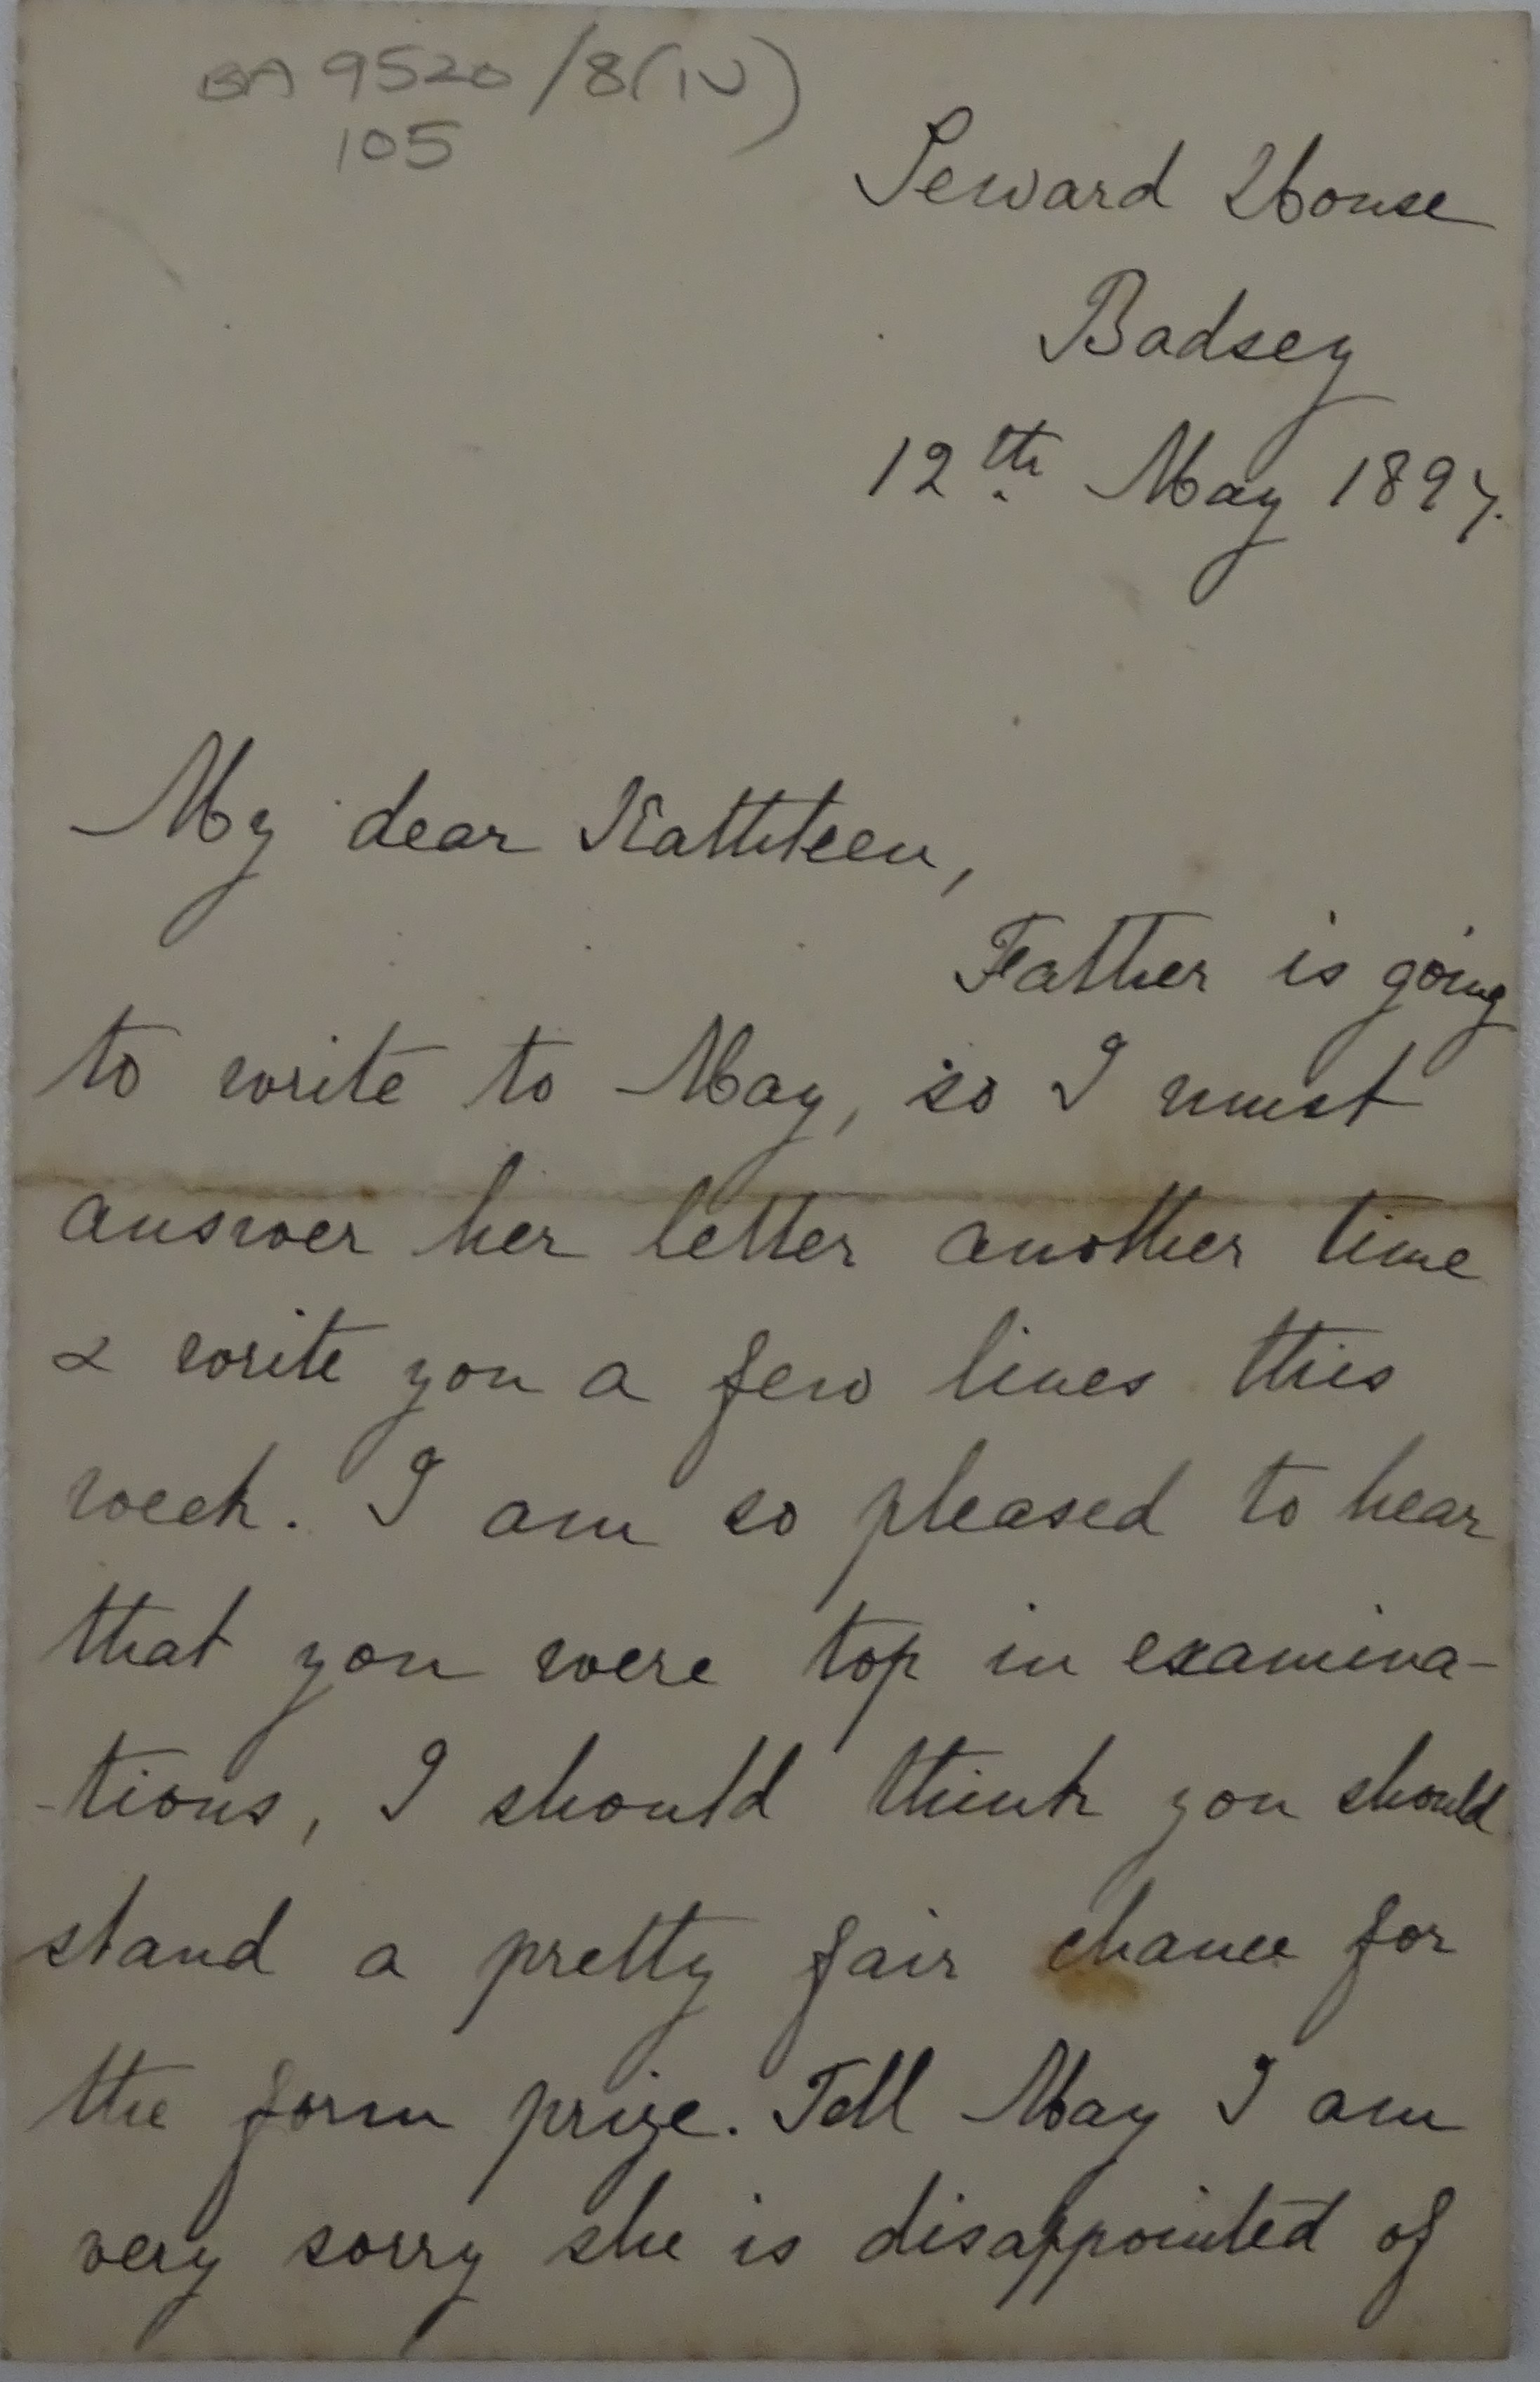 BA 9520/8(IV)
105
Seward House
Badsey
12th May 1897.
My dear Kathleen,
Father is going
to write to May, so I must
answer her letter another time
& write you a few lines this
week. I am so pleased to hear
that you were top in examina-
-tions, I should think you should
stand a pretty fair chance for
the form prize. Tell May I am
very sorry she is disappointed of